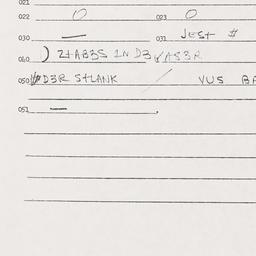 021
022 0 023 0
030 — 031 JEST #
060 ) Z+AB3S IND3VAS3R
050 D3R S+LANK / VUS BA
051 —